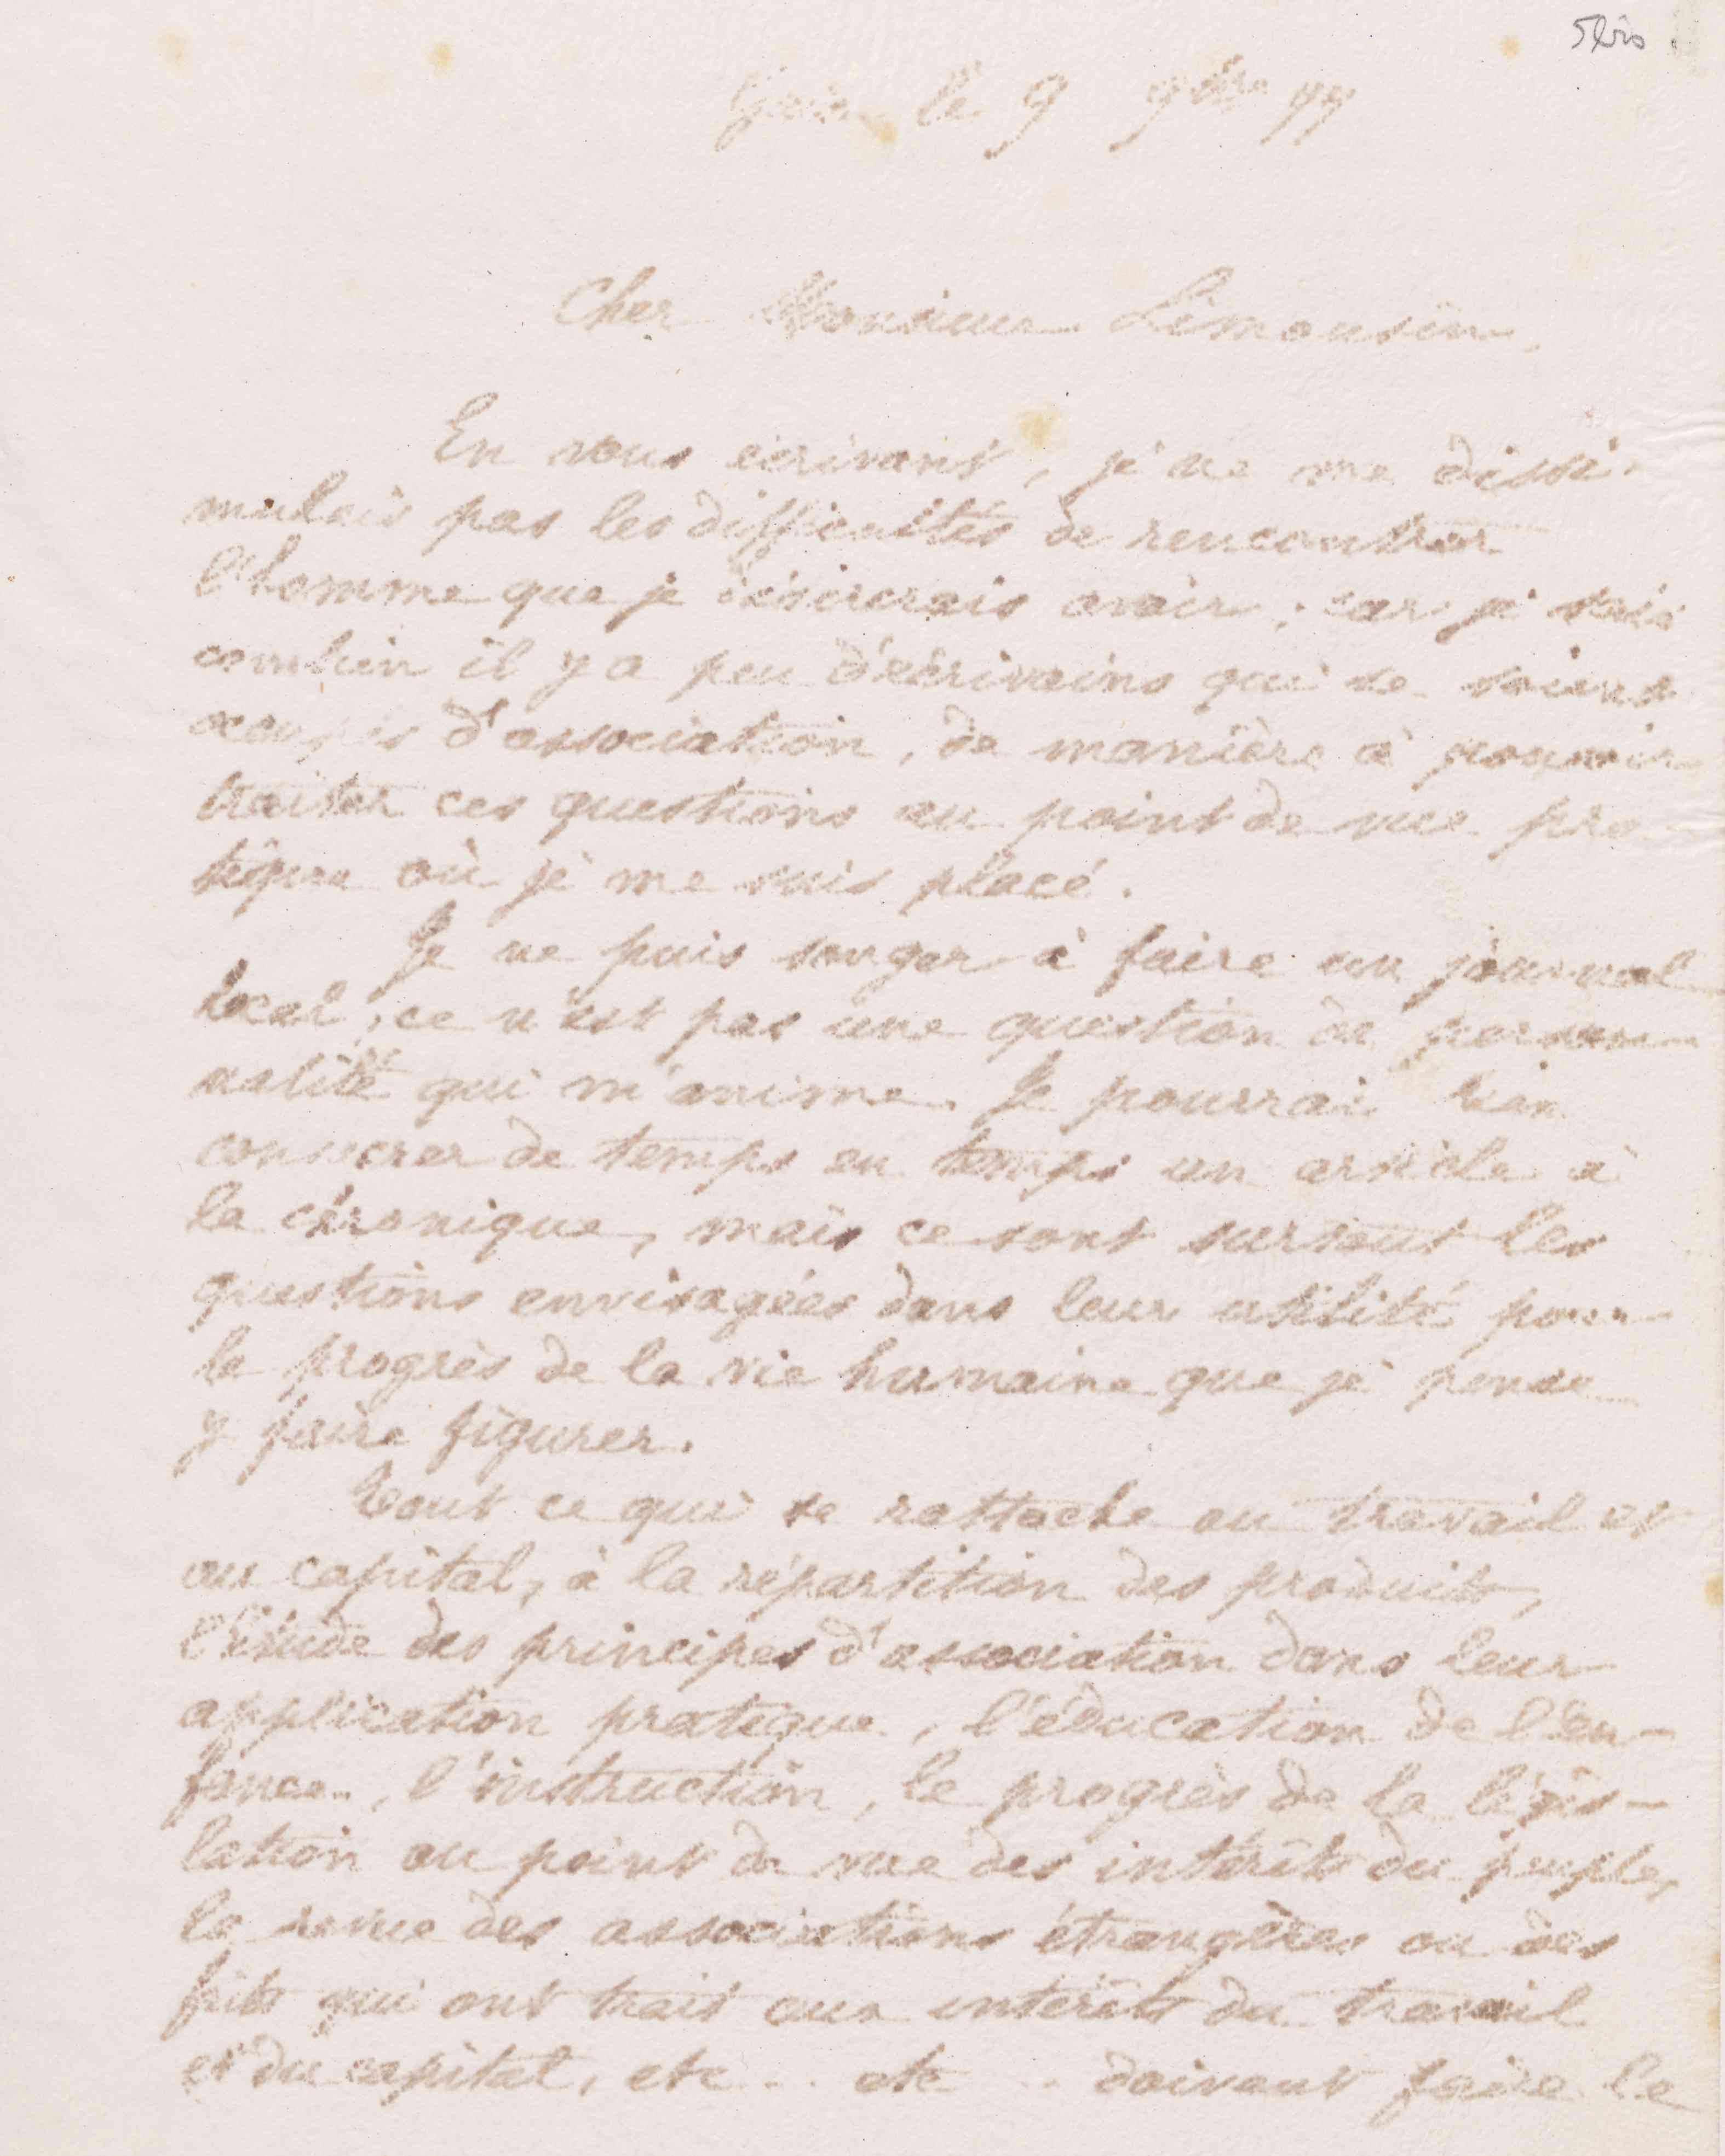 5bis
Guise le 9 9bre 77
Cher Monsieur Limousin,
En vous écrivant, je ne me dissi-
mulais pas les difficultés de rencontrer
l'homme que je désirerais avoir ; car je sais
combien il y a peu d'écrivains qui se soient
occupés d'association, de manière à pouvoir
traiter ces questions au point de vue pra
tique où je me suis placé.
Je ne puis songer à faire un journal
local ; ce n'est pas une question de person-
nalité qui m'anime. Je pourrai bien
consacrer de temps en temps un article à
la chronique, mais ce sont surtout les
questions envisagées dans leur utilité pour
le progrès de la vie humaine que je pense
y faire figurer.
Tout ce qui se rattache au travail et
au capital, à la répartition des produits,
l'étude des principes d'association dans leur
application pratique, l'éducation de l'en-
fance, l'instruction, le progrès de la légis-
lation au point de vue des intérêts du peuple,
la revue des associations étrangères ou des
faits qui ont trait aux intérêts du travail
et du capital, etc .. etc .. doivent faire le